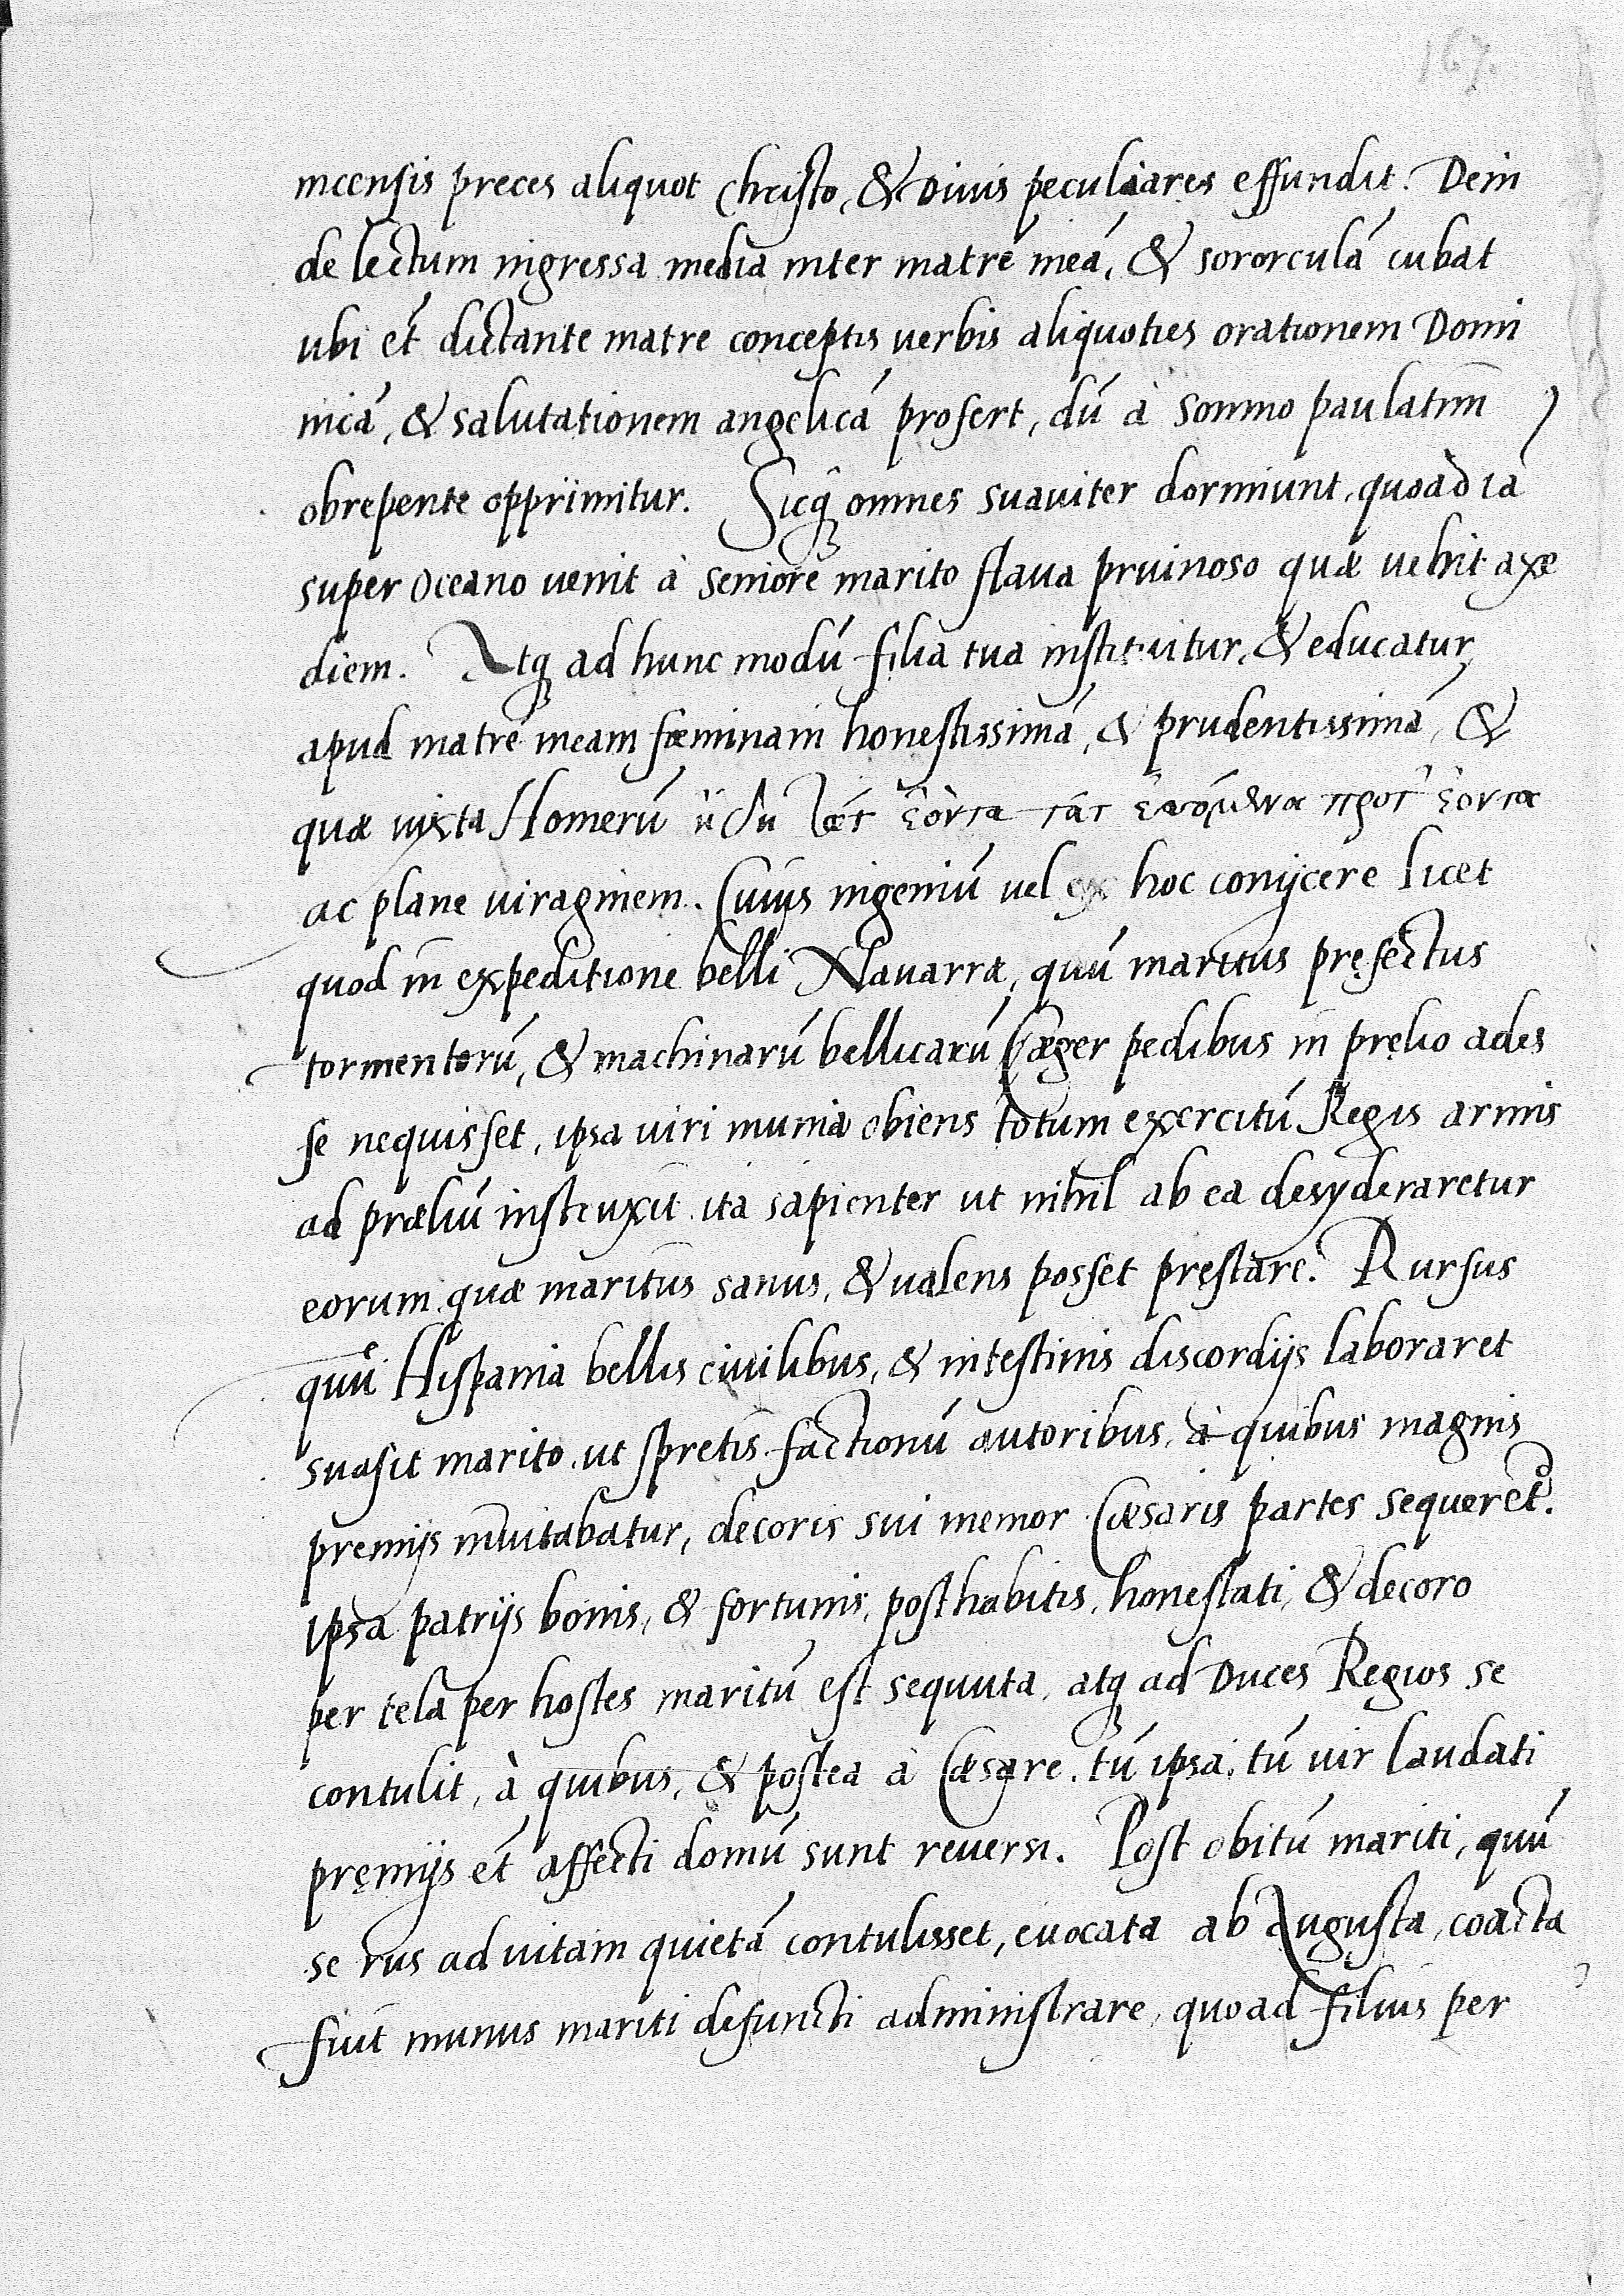 167.
incensis preces aliquot Christo, & Diuis peculiares effundit. Dein
de lectum ingressa media inter matrē meā, & sororculā cubat
ubi et̄ dictante matre conceptis uerbis aliquoties orationem Domi
nicā, & salutationem angelicā profert, dū à somno paulatim
obrepente opprimitur. Sicq̨ omnes suauiter dormiunt, quoad iā
super Oceano uenit à seniore marito flaua pruinoso quæ uehit axe
diem. Atq̨ ad hunc modū filia tua instituitur, & educatur
apud matrē meam fœminam honestissimā, & prudentissimā, &
quæ iuxta Homerū ἤδη τάτ' ἐόντα τάτ' ἐσσόμενα πρότ' ἐόντα
ac plane uiraginem. Cuius ingeniū uel ex hoc conijcere licet
quod in expeditione belli Nauarræ, quū maritus pręfectus
tormentorū, & machinarū bellicarū æger pedibus in pręlio ades
se nequisset, ipsa uiri munia obiens totum exercitū Regis armis
ad præliū instruxit ita sapienter ut nihil ab ea desyderaretur
eorum quæ maritus sanus, & ualens posset pręstare. Rursus
quū Hispania bellis ciuilibus, & intestinis discordijs laboraret
suasit marito, ut spretis factionū autoribus, à quibus magnis
premijs inuitabatur, decoris sui memor Cæsaris partes sequeret.
ipsa patrijs bonis, & fortunis, posthabitis, honestati, & decoro
per tela per hostes maritū est sequuta, atq̨ ad Duces Regios se
contulit, à quibus, & postea à Cæsare, tū ipsa, tū uir laudati
pręmijs et̄ affecti domū sunt reuersi. Post obitū mariti, quū
se rus ad uitam quietā contulisset, euocata ab Augusta, coacta
fuit munus mariti defuncti administrare, quoad filius per